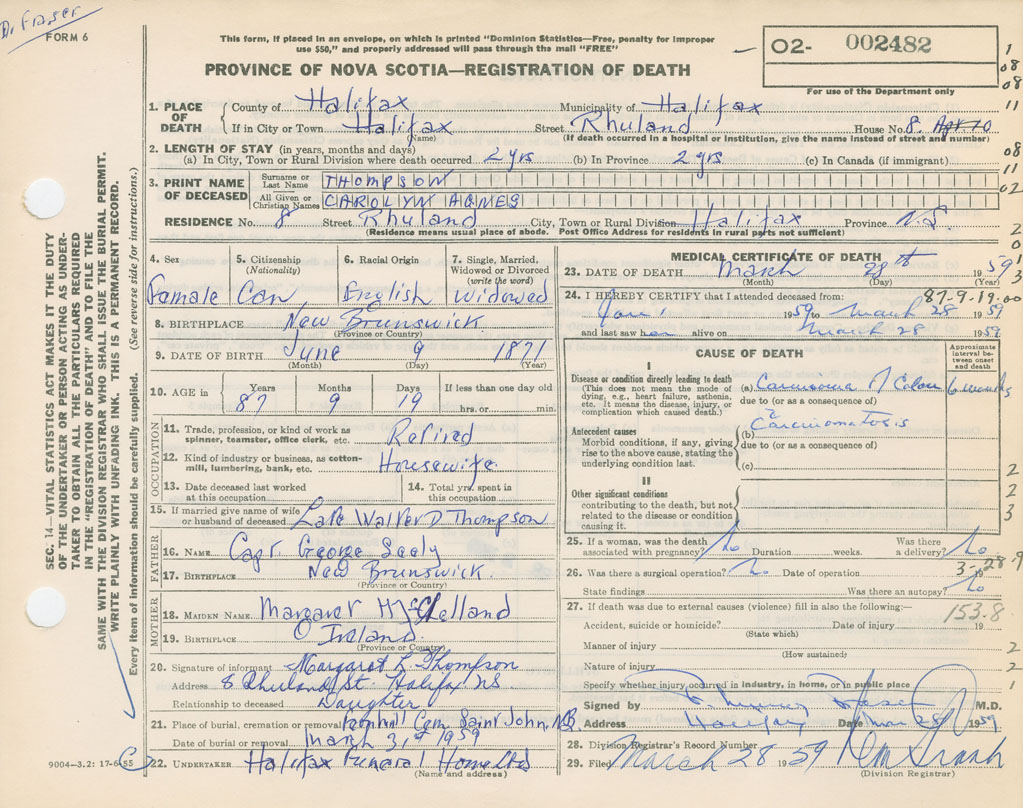 Dr Fraser
FORM 6
This form, if placed in an envelope, on which is printed "Dominion Statistics—Free, penalty for improper
use $50," and properly addressed will pass through the mail "FREE"
PROVINCE OF NOVA SCOTIA—REGISTRATION OF DEATH
02- 002482
For use of the Department only
1. PLACE OF DEATH
County of Halifax Municipality of Halifax
If in City or Town Halifax Street Rhuland House No. 8 Apt 10
(Name) (If death occurred in a hospital or institution, give the name instead of street and number)
2. LENGTH OF STAY (in years, months and days)
(a) In City, Town or Rural Division where death occurred 2 yrs (b) In Province 2 yrs (c) In Canada (if immigrant)
3. PRINT NAME OF DECEASED
Surname or Last Name THOMPSON
All Given or Christian Names CAROLYN AGNES
RESIDENCE No. 8 Street Rhuland City, Town or Rural Division Halifax Province N.S.
(Residence means usual place of abode. Post Office Address for residents in rural parts not sufficient)
4. Sex
Female
5. Citizenship (Nationality)
Can
6. Racial Origin
English
7. Single, Married, Widowed or Divorced (write the word)
Widowed
8. BIRTHPLACE New Brunswick
(Province or Country)
9. DATE OF BIRTH June 9 1871
(Month) (Day) (Year)
10. AGE in Years Months Days If less than one day old
87 9 19 hrs. or min.
OCCUPATION
11. Trade, profession, or kind of work as
spinner, teamster, office clerk, etc. Retired
12. Kind of industry or business, as cotton-
mill, lumbering, bank, etc. Housewife
13. Date deceased last worked
at this occupation
14. Total yrs. spent in
this occupation
15. If married give name of wife
or husband of deceased Late Walter D Thompson
FATHER
16. NAME Capt. George Seely
17. BIRTHPLACE New Brunswick
(Province or Country)
MOTHER
18. MAIDEN NAME Margaret McClelland
19. BIRTHPLACE Ireland
(Province or Country)
20. Signature of informant Margaret L. Thompson
Address 8 Rhuland St. Halifax NS
Relationship to deceased Daughter
21. Place of burial, cremation or removal Fernhill Cem. Saint John, NB.
Date of burial or removal March 31st 1959
22. UNDERTAKER Halifax Funeral Home Ltd
(Name and address)
9004—3.2: 17-6-55
MEDICAL CERTIFICATE OF DEATH
23. DATE OF DEATH March 28th 1959
(Month) (Day) (Year)
87-9-19.00
24. I HEREBY CERTIFY that I attended deceased from:
Jan 1 1959 to March 28 1959
and last saw her alive on March 28 1959
CAUSE OF DEATH
Approximate interval between onset and death
I
Disease or condition directly leading to death (a) Carcinoma of Colon 6 months
(This does not mean the mode of
dying, e.g., heart failure, asthenia,
etc. It means the disease, injury, or
complication which caused death.)
due to (or as a consequence of)
Antecedent causes (b) Carcinomatosis
Morbid conditions, if any, giving
rise to the above cause, stating the
underlying condition last.
due to (or as a consequence of)
(c)
II
Other significant conditions
contributing to the death, but not
related to the disease or condition
causing it.
25. If a woman, was the death
associated with pregnancy? No Duration weeks. Was there
a delivery? No
3-28-9
26. Was there a surgical operation? No Date of operation 19
State findings Was there an autopsy? No
27. If death was due to external causes (violence) fill in also the following:—
153.8
Accident, suicide or homicide? Date of injury 19
(State which)
Manner of injury
(How sustained)
Nature of injury
Specify whether injury occurred in industry, in home, or in public place
Signed by M.D.
Address Halifax Date Mar 28 1959
28. Division Registrar's Record Number
29. Filed March 28 1959
(Division Registrar)
SEC. 14—VITAL STATISTICS ACT MAKES IT THE DUTY
OF THE UNDERTAKER OR PERSON ACTING AS UNDER-
TAKER TO OBTAIN ALL THE PARTICULARS REQUIRED
IN THE "REGISTRATION OF DEATH" AND TO FILE THE
SAME WITH THE DIVISION REGISTRAR WHO SHALL ISSUE THE BURIAL PERMIT.
WRITE PLAINLY WITH UNFADING INK. THIS IS A PERMANENT RECORD.
Every item of information should be carefully supplied. (See reverse side for instructions.)
1
08
08
11
08
11
02
2
0
1
3
2
2
3
2
2
1